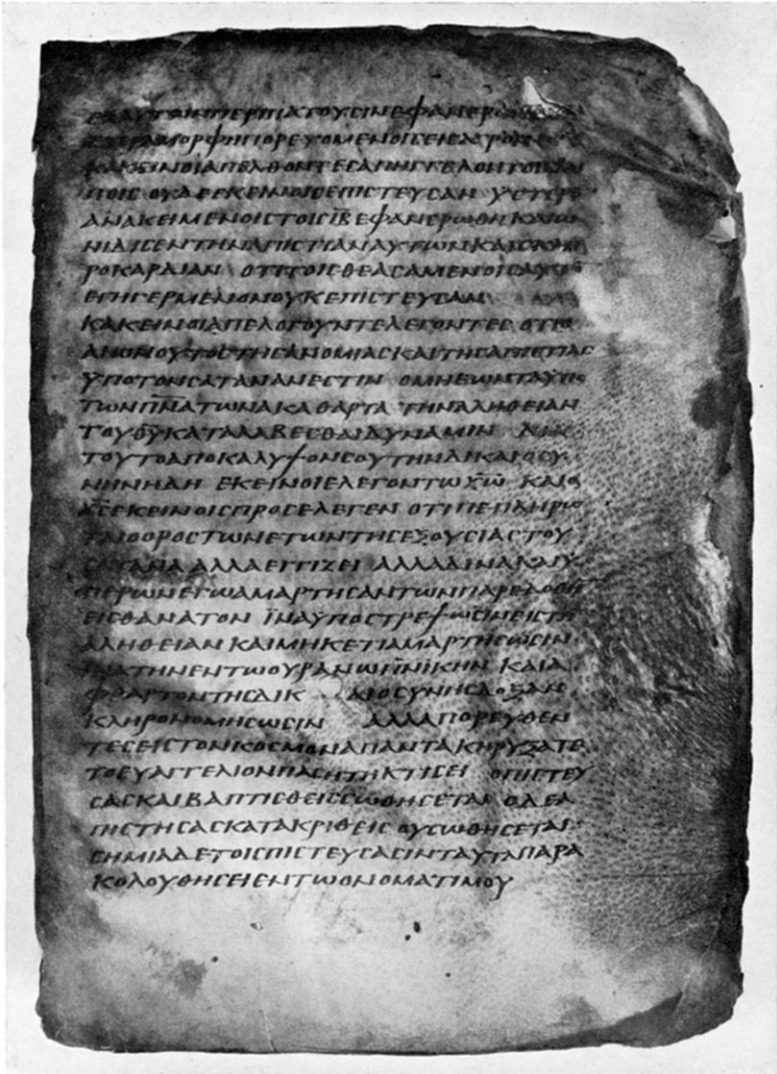 ΕΞΑΥΤΩΝΠΕΡΙΠΑΤΟΥϹΙΝΕΦΑΝΕΡΩ
ΕΤΕΡΑΜΟΡΦΗΠΟΡΕΥΟΜΕΝΟΙϹΕΙϹΑΓΡΟΝ
ΚΑΚΕΙΝΟΙΑΠΕΛΘΟΝΤΕϹΑΠΗΓΓΕΛΟΝΤΟΙϹΛΟΙ
ΠΟΙϹ ΟΥΔΕΕΚΕΙΝΟΙϹΕΠΙϹΤΕΥϹΑΝ ΥϹΤΕΡΟ
ΑΝΑΚΕΙΜΕΝΟΙϹΤΟΙϹΙ̅Α̅ΕΦΑΝΕΡΩΘΗΚΑΙΩ
ΝΙΔΙϹΕΝΤΗΝΑΠΙϹΤΙΑΝΑΥΤΩΝΚΑΙϹΚΛΗ
ΡΟΚΑΡΔΙΑΝ ΟΤΙΤΟΙϹΘΕΑϹΑΜΕΝΟΙϹΑΥΤΟ
ΕΓΗΓΕΡΜΕΝΟΝΟΥΚΕΠΙϹΤΕΥϹΑΝ
ΚΑΚΕΙΝΟΙΑΠΕΛΟΓΟΥΝΤΕΛΕΓΟΝΤΕϹ ΟΤΙΟ
ΑΙΩΝΟΥΤΟϹΤΗϹΑΝΟΜΙΑϹΚΑΙΤΗϹΑΠΙϹΤΙΑϹ
ΫΠΟΤΟΝϹΑΤΑΝΑΝΕϹΤΙΝ ΟΜΗΕΩΝΤΑΫΠΟ
ΤΩΝΠ̅Ν̅Α̅ΤΩΝΑΚΑΘΑΡΤΑ ΤΗΝΑΛΗΘΕΙΑΝ
ΤΟΥΘ̅Υ̅ΚΑΤΑΛΑΒΕϹΘΑΙΔΥΝΑΜΙΝ ΔΙΑ
ΤΟΥΤΟΑΠΟΚΑΛΥΨΟΝϹΟΥΤΗΝΔΙΚΑΙΟϹΥ
ΝΗΝΗΔΗ ΕΚΕΙΝΟΙΕΛΕΓΟΝΤΩΧ̅Ω̅ ΚΑΙΟ
Χ̅Ϲ̅ΕΚΕΙΝΟΙϹΠΡΟϹΕΛΕΓΕΝ ΟΤΙΠΕΠΛΗΡΩ
ΤΑΙΟΟΡΟϹΤΩΝΕΤΩΝΤΗϹΕΞΟΥϹΙΑϹΤΟΥ
ϹΑΤΑΝΑ ΑΛΛΑΕΓΓΙΖΕΙ ΑΛΛΑΔΙΝΑΚΑΙΥ
ΠΕΡΩΝΕΓΩΑΜΑΡΤΗϹΑΝΤΩΝΠΑΡΕΔΟΘΗ
ΕΙϹΘΑΝΑΤΟΝ ΪΝΑΫΠΟϹΤΡΕΨΩϹΙΝΕΙϹΤΗ
ΑΛΗΘΕΙΑΝ ΚΑΙΜΗΚΕΤΙΑΜΑΡΤΗϹΩϹΙΝ
ΪΝΑΤΗΝΕΝΤΩΟΥΡΑΝΩΠ̅Ν̅ΙΚΗΝ ΚΑΙΑ
ΦΘΑΡΤΟΝΤΗϹΔΙΚ ΑΙΟϹΥΝΗϹΔΟΞΑΝ
ΚΛΗΡΟΝΟΜΗϹΩϹΙΝ ΑΛΛΑΠΟΡΕΥΘΕΝ
ΤΕϹΕΙϹΤΟΝΚΟϹΜΟΝΑΠΑΝΤΑΚΗΡΥΞΑΤΕ
ΤΟΕΥΑΓΓΕΛΙΟΝΠΑϹΗΤΗΚΤΙϹΕΙ ΟΠΙϹΤΕΥ
ϹΑϹΚΑΙΒΑΠΤΙϹΘΕΙϹϹΩΘΗϹΕΤΑΙ ΟΔΕΑ
ΠΙϹΤΗϹΑϹΚΑΤΑΚΡΙΘΕΙϹ ΟΥϹΩΘΗϹΕΤΑΙ
ϹΗΜΙΑΔΕΤΟΙϹΠΙϹΤΕΥϹΑϹΙΝΤΑΥΤΑΠΑΡΑ
ΚΟΛΟΥΘΗϹΕΙΕΝΤΩΟΝΟΜΑΤΙΜΟΥ